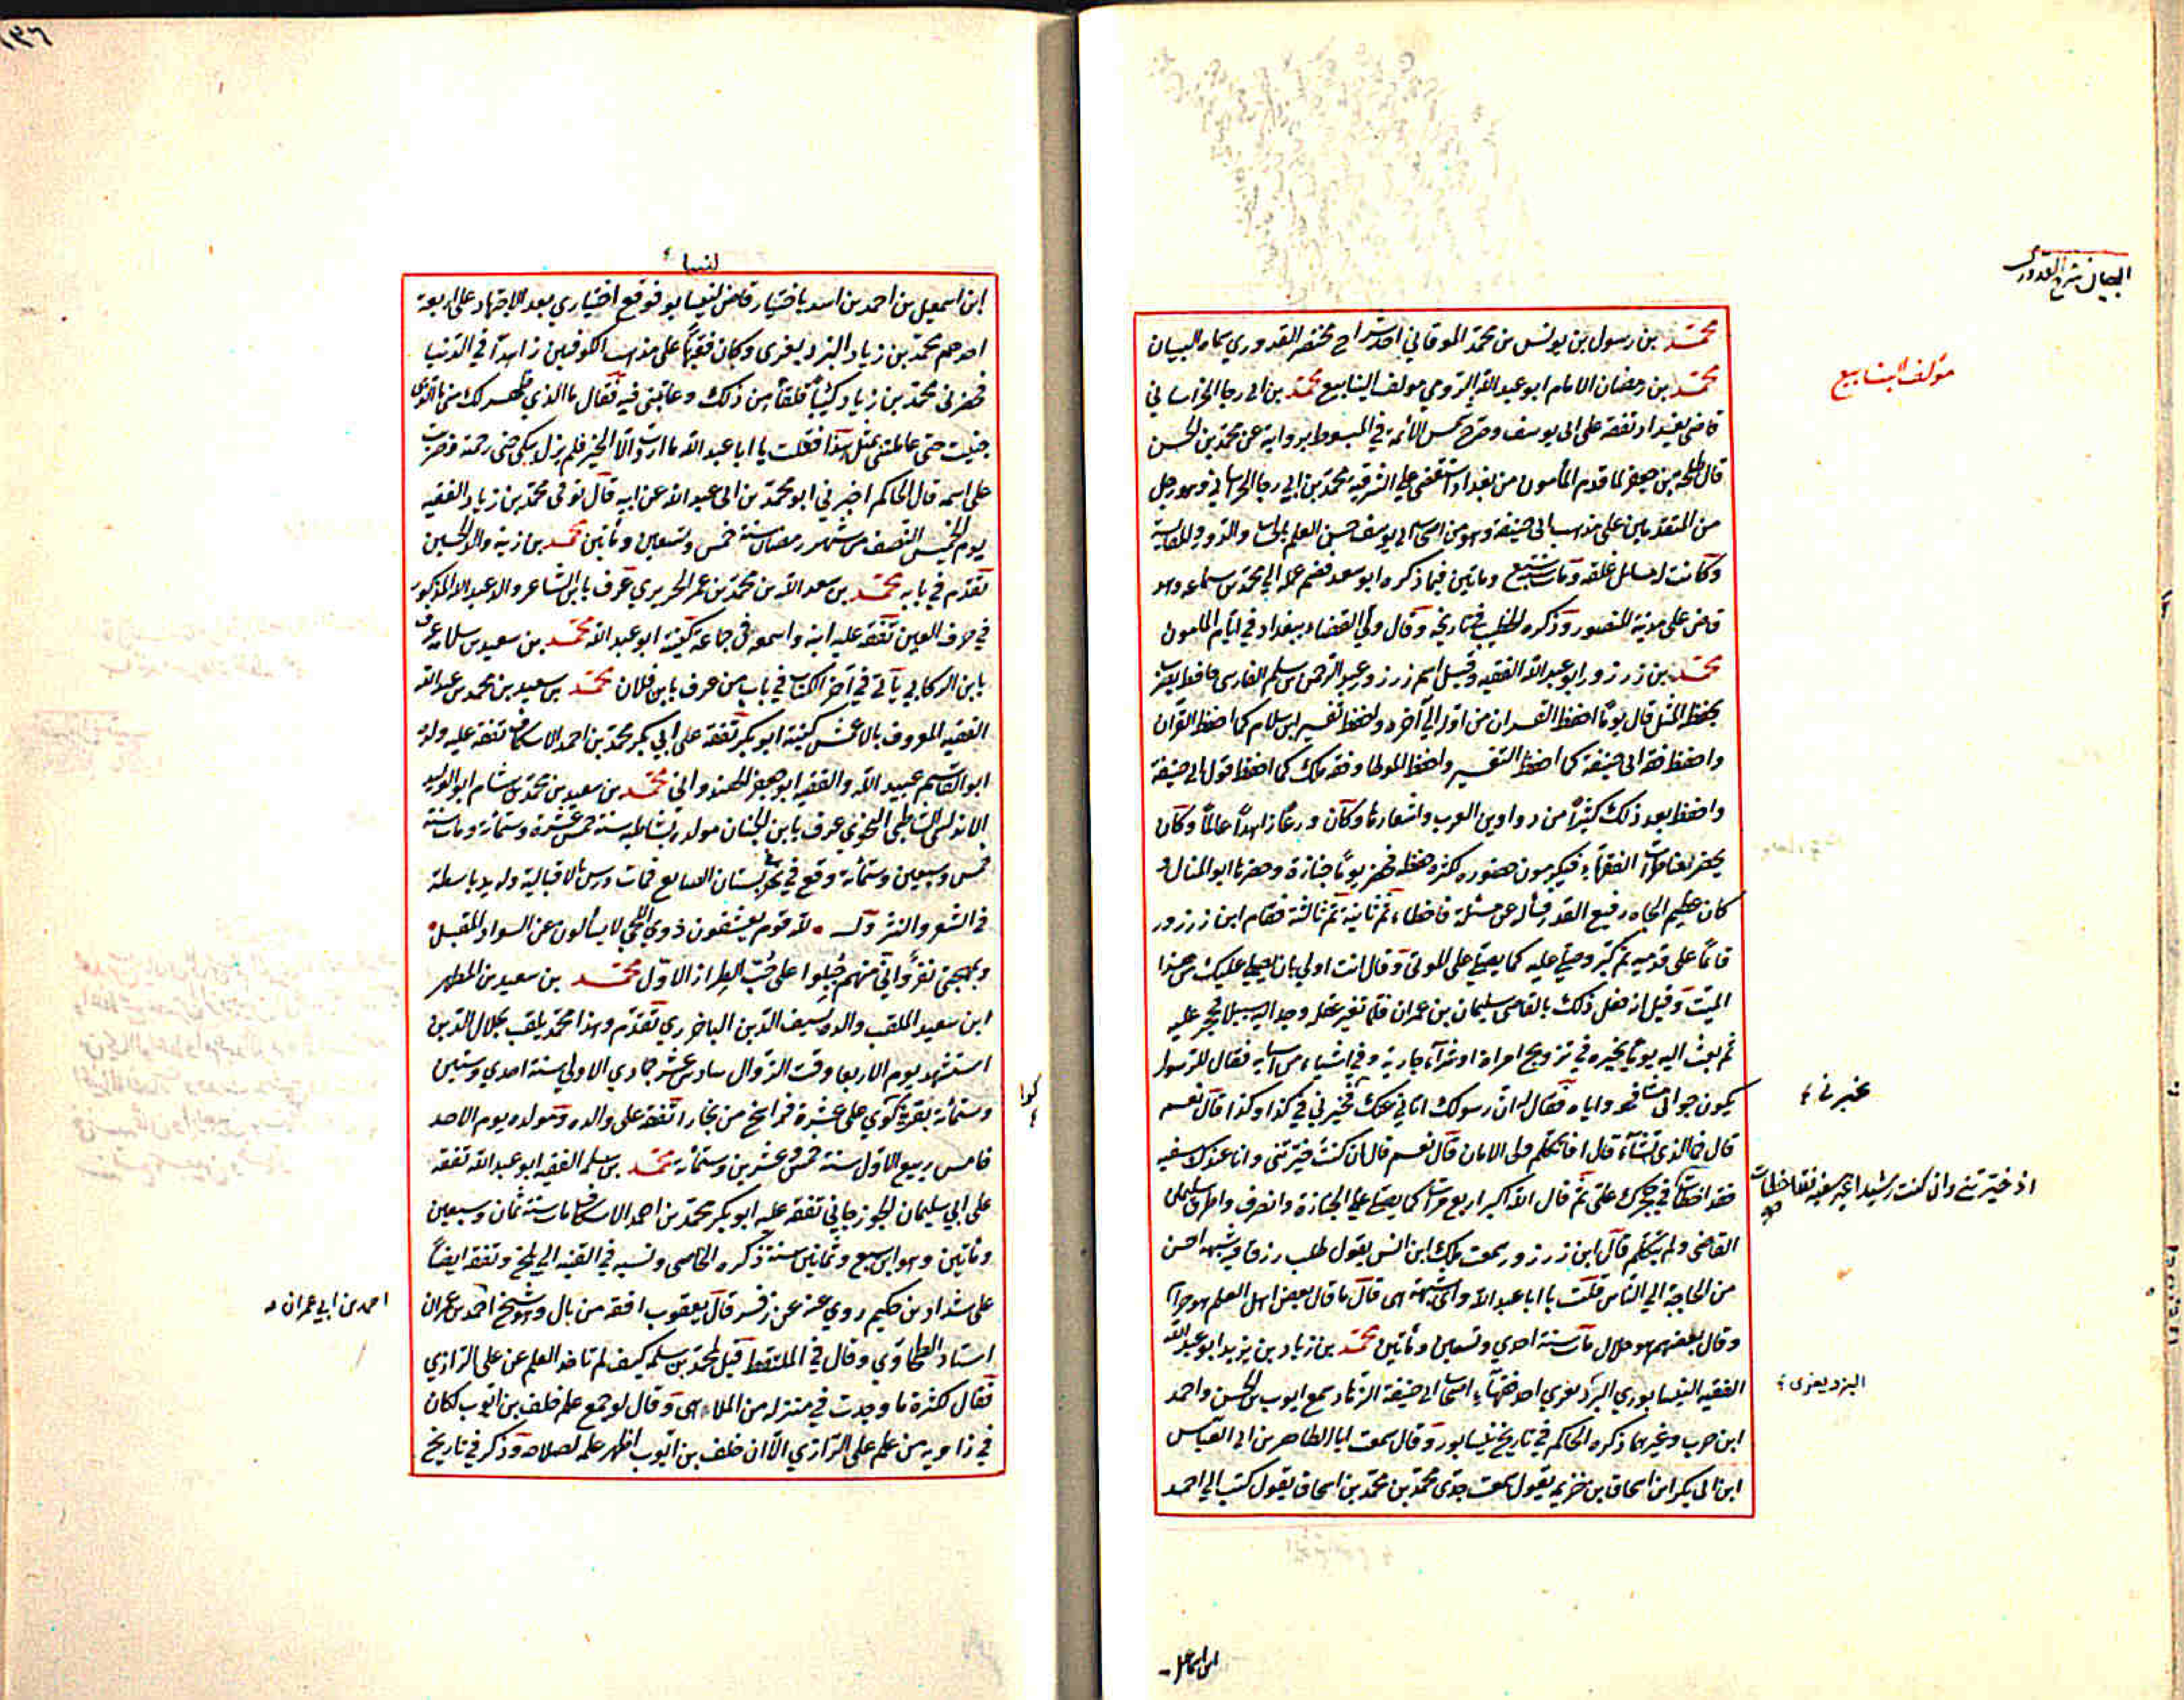 البيان شرح القدوري
محمد بن رسول بن يونس بن محمد الموقاني احد شراح مختصر القدوري سماه البيان
مؤلف الينابيع
محمد بن رمضان الامام ابو عبد الله الرومي مولف الينابيع محمد بن ابي رجا الخراساني
قاضي بغداد تفقه على ابي يوسف وخرج شمس الأئمة في المبسوط برواية عن محمد بن الحسن
قال طلحة بن جعفر لما قدم المأمون من بغداد استقضى على الشرقية محمد بن ابي رجا الخراساني وهو رجل
من المتقدمين على مذهب ابي حنيفة وهو من اصحاب ابي يوسف حسن العلم بالحساب والدور والمقايسة
وكانت له مسائل غلقة ومات سنة سبع ومأتين فيما ذكره ابو سعد فضم عمله الي محمد بن سماعه وهو
قاض على مدينة المنصور وذكره الخطيب في تاريخه وقال ولي القضاء ببغداد في ايام المامون
محمد بن زرزور ابو عبد الله الفقيه وقيل اسم زرزور عبد الرحمن بن سلم الفارسي حافظ يضرب
بحفظه المثل قال يوماً احفظ القران من اوله الي آخره واحفظ تفسير ابن سلام كما احفظ القرآن
واحفظ فقه ابي حنيفة كما احفظ التفسير واحفظ الموطا وفقه مالك كما احفظ قول ابي حنيفة
واحفظ بعد ذلك كثيراً من دواوين العرب واشعارها وكان ورعاً زاهداً عالماً وكان
يحضر مناظرات الفقهاء فيكرمون حضوره لكثرة حفظه فحضر يوماً جنازة وحضرها ابو المنهال و
كان عظيم الجاه رفيع القدر فسأله عن مسئلة فاخطاء ثم ثانية ثم ثالثة فقام ابن زرزور
قائماً على قدميه ثم كبر وصلى عليه كما يصلى على الموتى وقال انت اولي بان يصلى عليك من هذا
الميت وقيل انه فعل ذلك بالقاضي سليمان بن عمران فلما تغير عقله وجد اليه سبيلا فحجر عليه
ثم بعث اليه يوماً يخيره في تزويج امراة او شراء جارية وفي اشياء من اسبابه فقال للرسول
يكون جوابي مشافهة واياه فقال له ان رسولك اتاني عنك فخيرني في كذا وكذا قال نعم
يخبرني
قال فما الذي تشاء قال افاتكلم ولي الامان قال نعم قال ان كنت خيرتني وانا عندك سفيه
فقد اخطأت في حجرك علي ثم قال الله اكبر اربع مرات كما يصلي على الجنازة وانصرف واطرق سليمان
اذ خيرتني وان كنت رشيدا غير سفيه فقد اخطأت
القاضي ولم يتكلم قال ابن زرزور سمعت مالك ابن انس يقول طلب رزق فيه شبهة احسن
من الحاجة الي الناس قلت يا ابا عبد الله واي شبهة هي قال ما قال بعض اهل العلم هو حرام
وقال بعضهم هو حلال مات سنة احدي وتسعين ومأتين محمد بن زياد بن يزيد ابو عبد الله
الفقيه النيسابوري البزديغري احد فقهاء اصحاب ابي حنيفة الزهاد سمع ايوب بن الحسن واحمد
البزديغري
ابن حرب وغيرهما ذكره الحاكم في تاريخ نيسابور وقال سمعت ابا الطاهر بن ابي العباس
ابن ابي بكر ابن اسحاق بن خزيمة يقول سمعت جدي محمد بن محمد بن اسحاق يقول كتب الي احمد
ابن اسماعيل
١٣٦
لنيسا
ابن اسمعيل بن احمد بن اسد باختيار قاض لنيسابور فوقع اختياري بعد الاجتهاد على اربعة
احدهم محمد بن زياد البزديغري وكان فقيهاً على مذهب الكوفيين زاهداً في الدنيا
فحضرني محمد بن زياد كئيباً قلقاً من ذلك وعاتبني فيه فقال ما الذي ظهر لك مني ما الذي
جنيت حتى عاملتني بمثل هذا فقلت يا ابا عبد الله ما اردت الا الخير فلم يزل يبكي حتى رحمته وضربت
على اسمه قال الحاكم اخبرني ابو محمد بن ابي عبد الله عن ابيه قال توفي محمد بن زياد الفقيه
يوم الخميس النصف من شهر رمضان سنة خمس وتسعين ومأتين محمد بن زيد والد الحسين
تقدم في بابه محمد بن سعد الله بن محمد بن عمر الحريري عرف بابن الشاعر والد عبد الله المذكور
في حرف العين تفقه عليه ابنه واسمعه في جماعة كنيته ابو عبد الله محمد بن سعيد بن سلامة عرف
بابن الركابي يأتي في آخر الكتاب في باب من عرف بابن فلان محمد بن سعيد بن محمد بن عبد الله
الفقيه المعروف بالاعمش كنيته ابو بكر تفقه على ابي بكر محمد بن احمد الاسكاف تفقه عليه ولده
ابو القاسم عبيد الله والفقيه ابو جعفر الهندواني محمد بن سعيد بن محمد بن هشام ابو الوليد
الاندلسي الشاطبي النحوي عرف بابن الجنان مولده بشاطبه سنة خمس عشرة وستمائة ومات سنة
خمس وسبعين وستمائة وقع في بحر بستان الصايع فمات درس بالاقبالية وله يد باسطة
في الشعر والنثر وله لله قوم يعشقون ذوي اللحي لا يسألون عن السواد المقبل
وبمهجتي نفر واني منهم جبلوا على حب الطراز الاول محمد بن سعيد بن المطهر
ابن سعيد الملقب والده بسيف الدين الباخرزي تقدم وهذا محمد يلقب بجلال الدين
استشهد يوم الاربعا وقت الزوال سادس عشر جمادي الاولي سنة احدي وستين
وستمائة بقرية كوي على عشرة فراسخ من بخارا تفقه على والده ومولده يوم الاحد
كوا
خامس ربيع الاول سنة خمس وعشرين وستمائة محمد بن سلمة الفقيه ابو عبد الله تفقه
على ابي سليمان الجوزجاني تفقه عليه ابو بكر محمد بن احمد الاسكاف مات سنة ثمان وسبعين
ومأتين وهو ابن سبع وثمانين سنة ذكره الخاصي ونسبه في القنية الي بلخ وتفقه ايضاً
على شداد بن حكيم روي عنه عن زفر قال يعقوب افقه من بال وهو شيخ احمد بن عمران
احمد بن ابي عمران
استاد الطحاوي وقال في الملتقط قيل لمحمد بن سلمة كيف لم تاخذ العلم عن علي الرازي
فقال لكثرة ما وجدت في منزله من الملاهي وقال لو جمع علم خلف بن ايوب لكان
في زاوية من علم علي الرازي الا ان خلف بن ايوب اظهر علمه لصلاحه وذكر في تاريخ